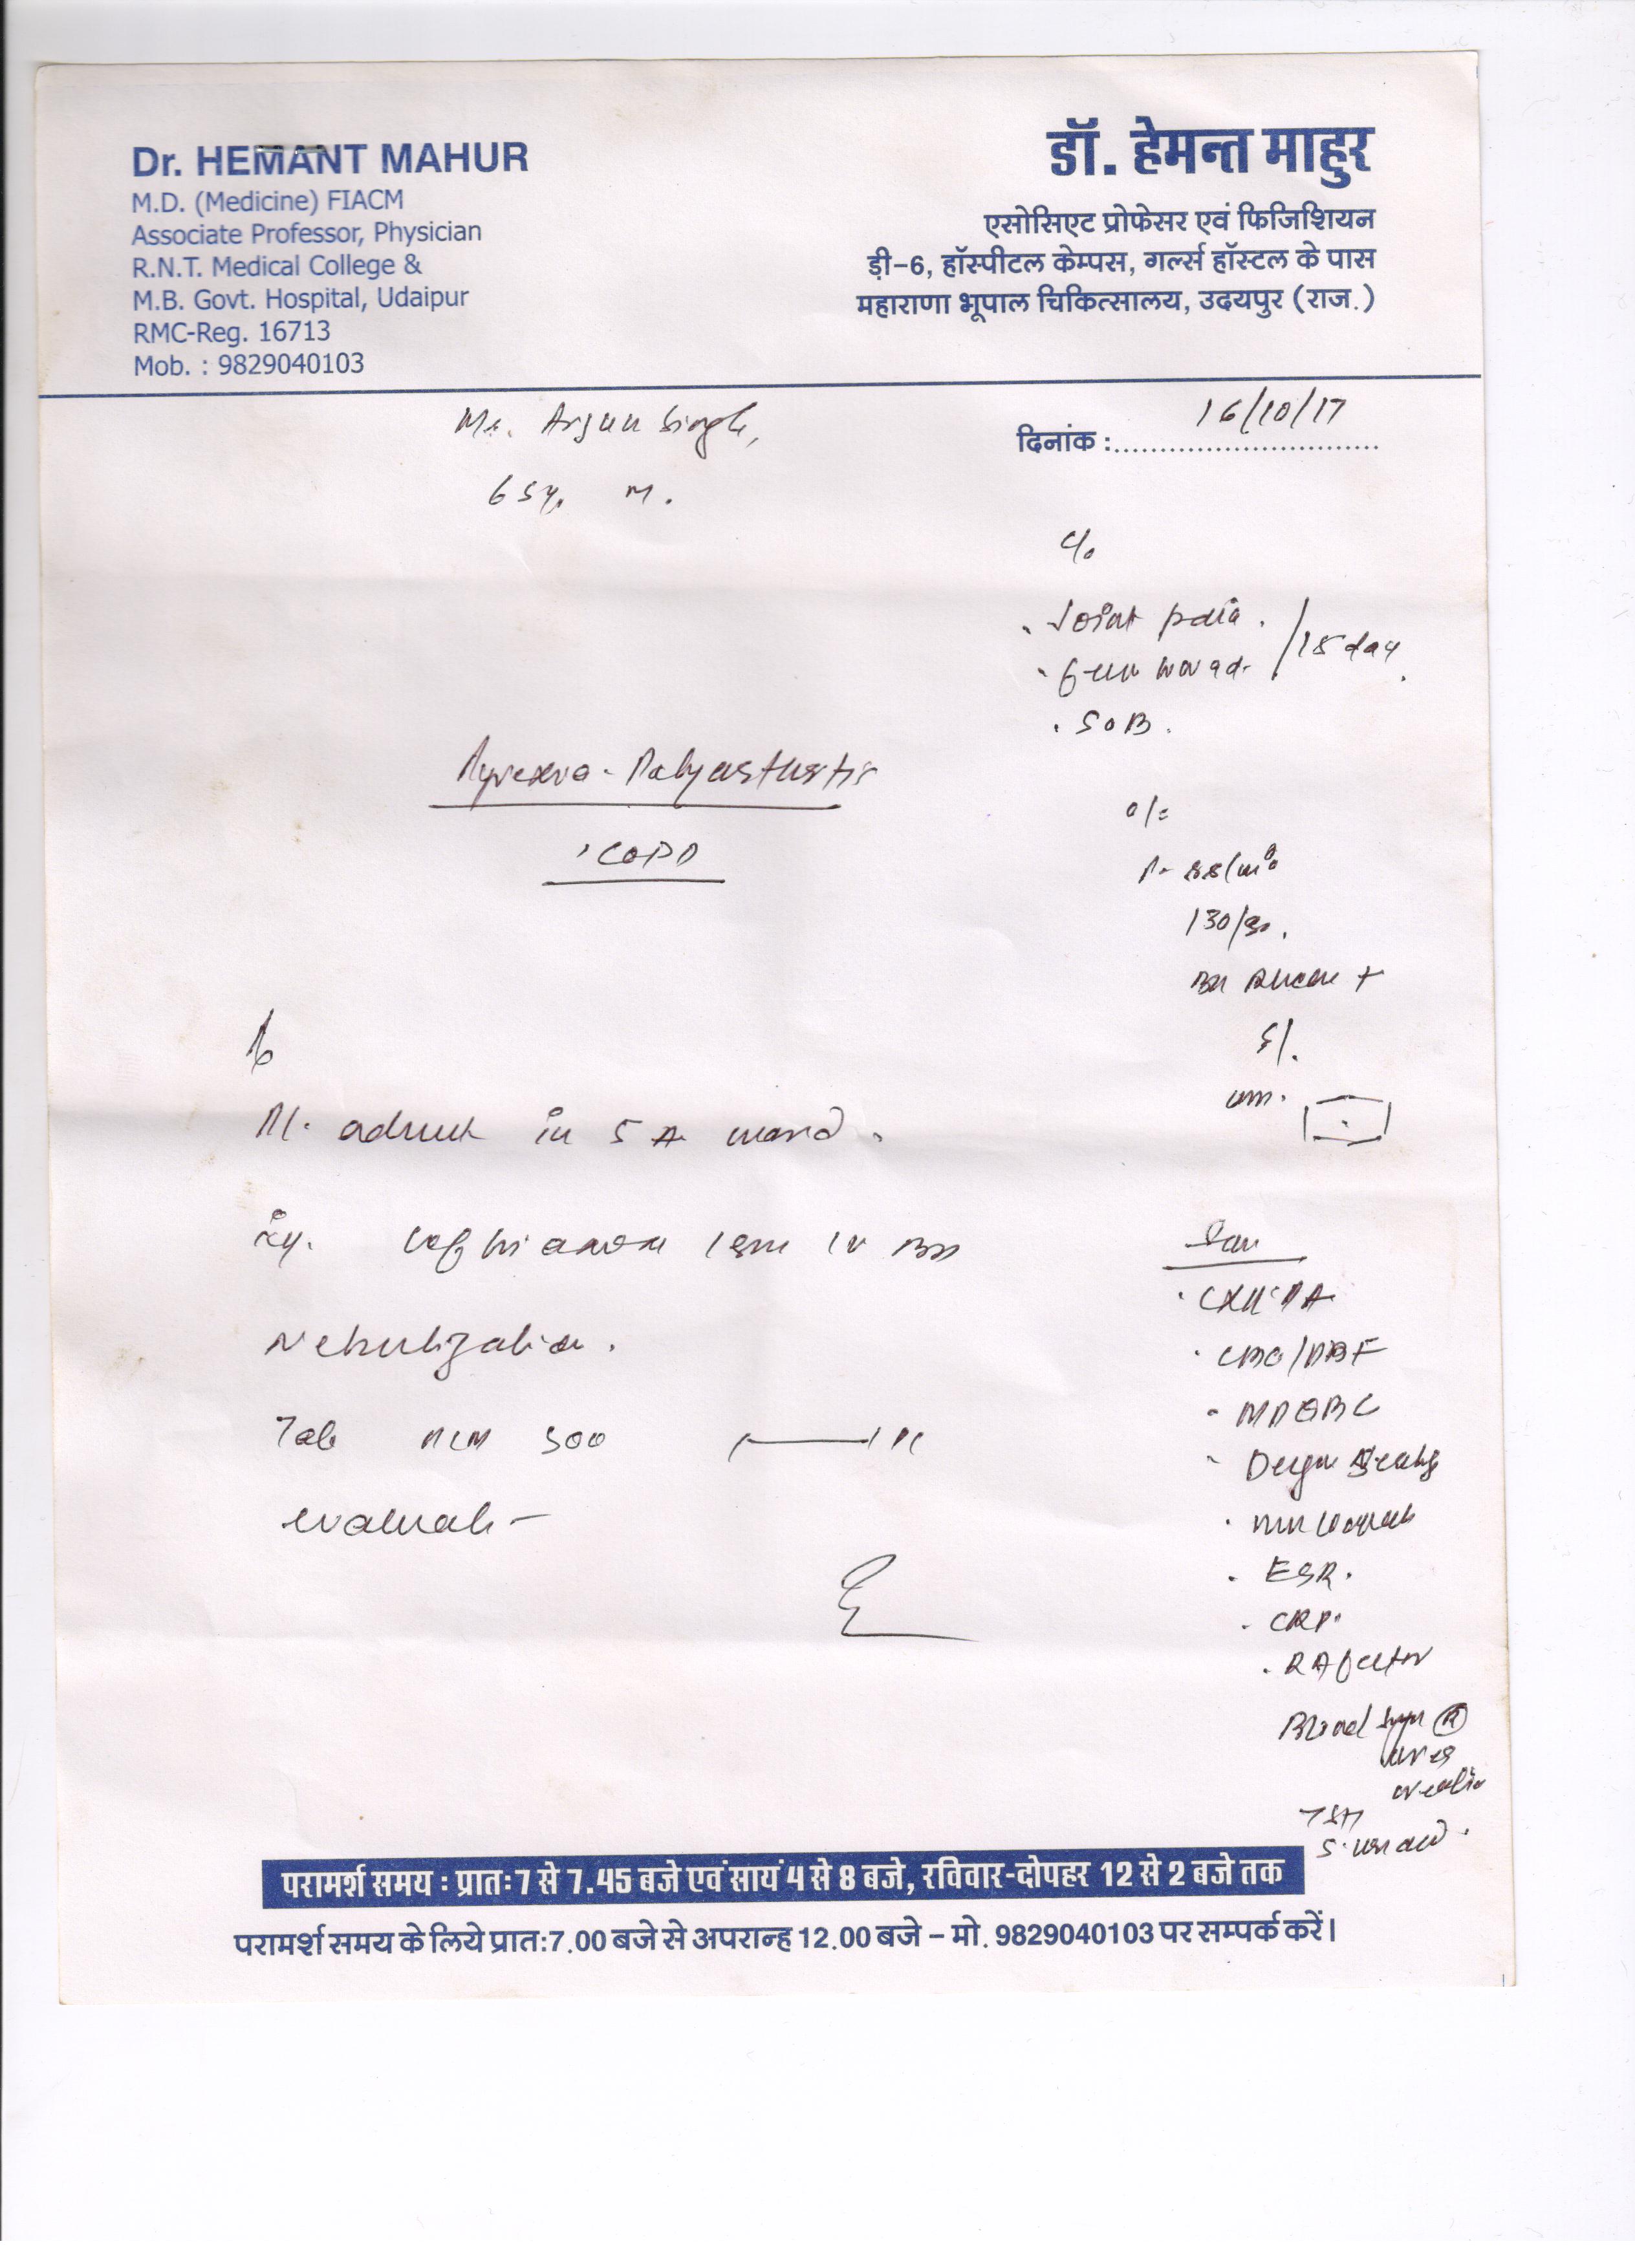 Dr. HEMANT MAHUR
M.D. (Medicine) FIACM
Associate Professor, Physician
R.N.T. Medical College &
M.B. Govt. Hospital, Udaipur
RMC-Reg. 16713
Mob. : 9829040103
डॉ. हेमन्त माहुर
एसोसिएट प्रोफेसर एवं फिजिशियन
ड़ी-6, हॉस्पीटल केम्पस, गर्ल्स हॉस्टल के पास
महाराणा भूपाल चिकित्सालय, उदयपुर (राज.)
Mr. Arjun Singh,
दिनांक : 16/10/17
65y. M.
C/o
. Joint pain .
/15 day
. SOB .
Pyrexia - Polyarthritis
O/E
COPD
130/80 .
Pt. admit in 5 A ward .
Inj. 1gm IV BD
Nebulization .
. CXR PA
. CBC/PBF
Tab PCM 500
. MPQBC
evaluate -
. ESR .
. CRP .
. RA factor
Blood sugar (R)
urea
TSH
परामर्श समय : प्रातः 7 से 7.45 बजे एवं सायं 4 से 8 बजे, रविवार-दोपहर 12 से 2 बजे तक
परामर्श समय के लिये प्रातः 7.00 बजे से अपरान्ह 12.00 बजे – मो. 9829040103 पर सम्पर्क करें।